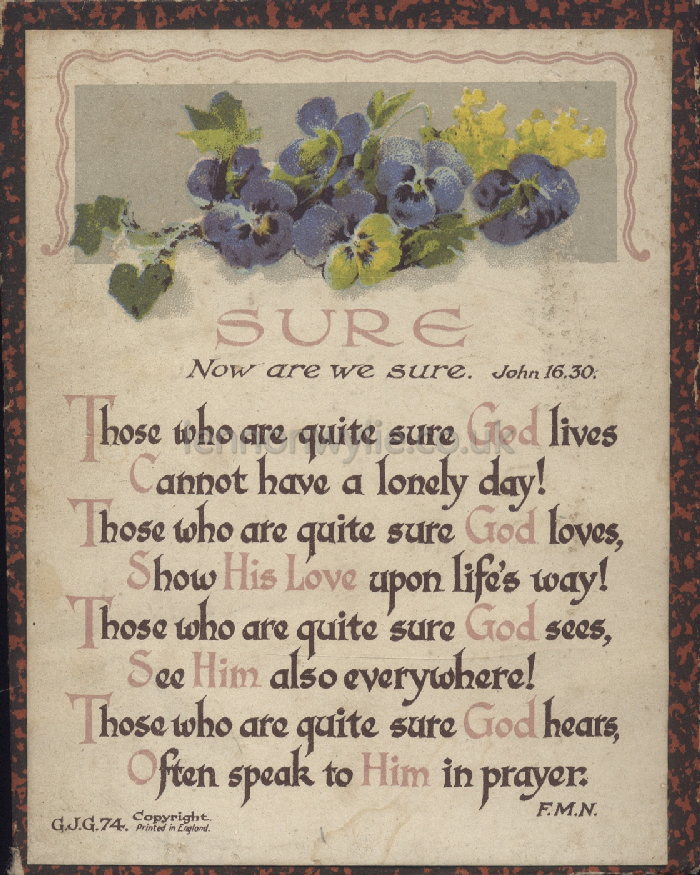 SURE
Now are we sure. John 16.30.
Those who are quite sure God lives
lennonwylie.co.uk
Cannot have a lonely day!
Those who are quite sure God loves,
Show His Love upon life's way!
Those who are quite sure God sees,
See Him also everywhere!
Those who are quite sure God hears,
Often speak to Him in prayer.
F.M.N.
G.J.G.74. Copyright.
Printed in England.